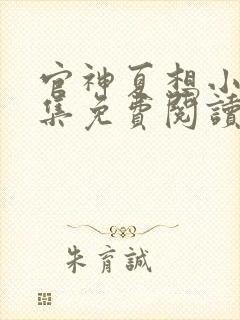 官神夏想小
集免費閱讀
朱育誠